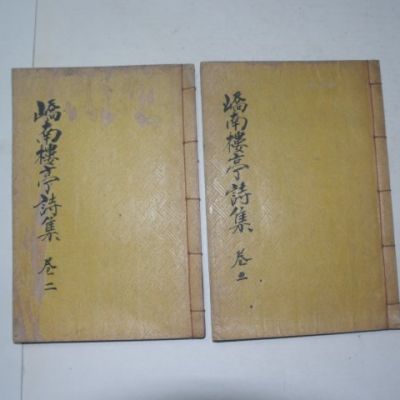 嶠南樓亭詩集 卷二
嶠南樓亭詩集 卷五